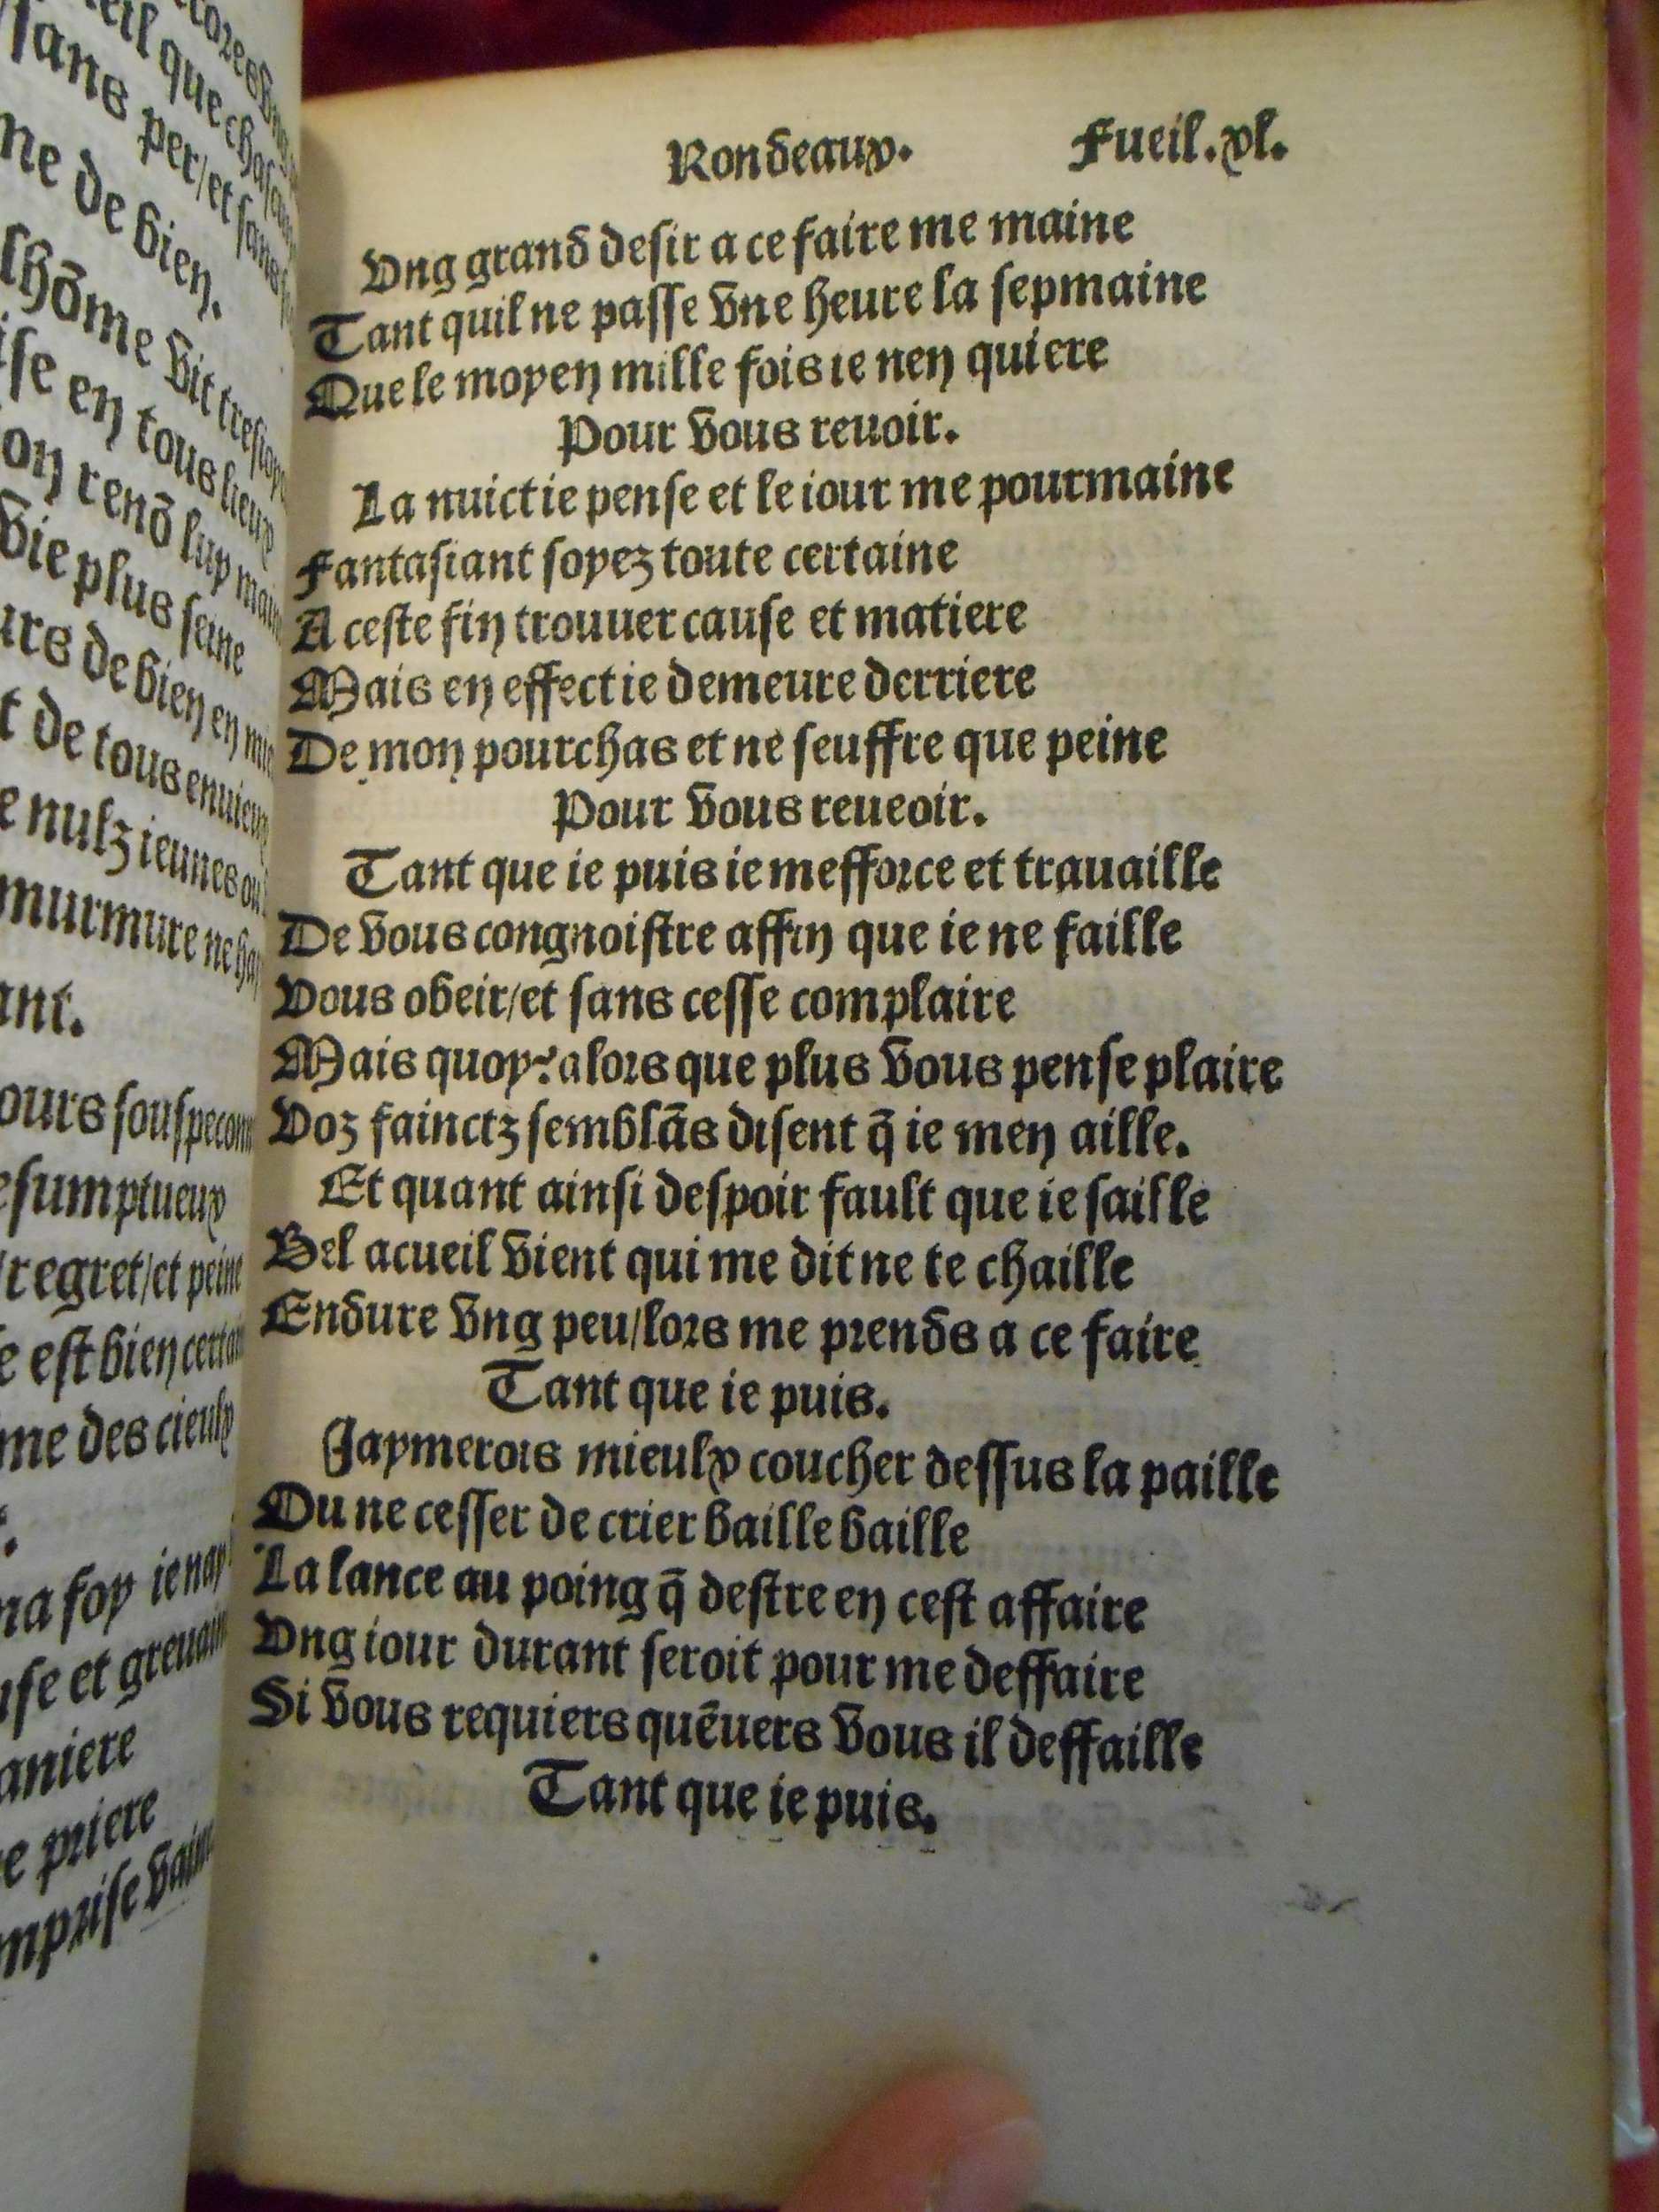 ne de bien.
ise en tous lieux
vie plus seine
urs de bien en
t de tous enuieux
e nulz ieunes ou
murmure ne
ant.
ours souspeconn
esumptueux
/regret/et peine
e est bien certai
me des cieulx
na foy ie nay
use et greuain
aniere
e priere
mprise vain
Rondeaux. Fueil.xl.
Vng grand desir a ce faire me maine
Tant quil ne passe vne heure la sepmaine
Que le moyen mille fois ie nen quiere
Pour vous reuoir.
La nuict ie pense et le iour me pourmaine
Fantasiant soyez toute certaine
A ceste fin trouuer cause et matiere
Mais en effect ie demeure derriere
De mon pourchas et ne seuffre que peine
Pour vous reueoir.
Tant que ie puis ie mefforce et trauaille
De vous congnoistre affin que ie ne faille
Vous obeir/et sans cesse complaire
Mais quoy? alors que plus vous pense plaire
Voz fainctz semblãs disent q̃ ie men aille.
Et quant ainsi despoir fault que ie saille
Bel acueil vient qui me dit ne te chaille
Endure vng peu/lors me prends a ce faire
Tant que ie puis.
Jaymerois mieulx coucher dessus la paille
Ou ne cesser de crier baille baille
La lance au poing q̃ destre en cest affaire
Vng iour durant seroit pour me deffaire
Si vous requiers quẽuers vous il deffaille
Tant que ie puis.